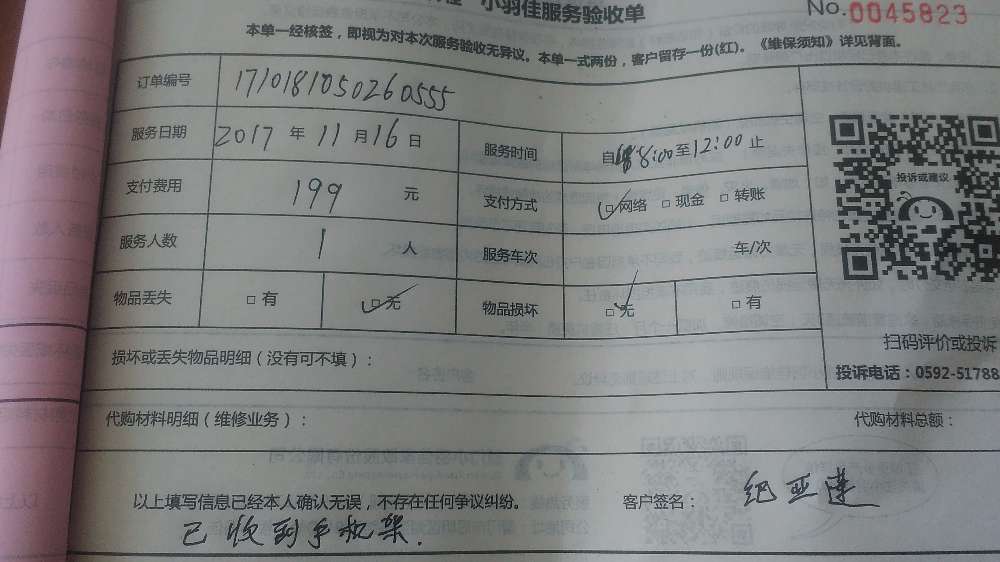 小羽佳服务验收单
No.0045823
本单一经核签，即视为对本次服务验收无异议。本单一式两份，客户留存一份(红)。《维保须知》详见背面。
订单编号 1710181050260555
服务日期 2017 年 11 月 16 日 服务时间 自 8:00 至 12:00 止
支付费用 199 元 支付方式 ☑网络 □现金 □转账
服务人数 1 人 服务车次 车/次
物品丢失 □有 ☑无 物品损坏 ☑无 □有
投诉或建议
扫码评价或投诉
投诉电话：0592-51788
损坏或丢失物品明细（没有可不填）：
代购材料明细（维修业务）： 代购材料总额：
以上填写信息已经本人确认无误，不存在任何争议纠纷。 客户签名： 纪亚莲
已收到手机架.